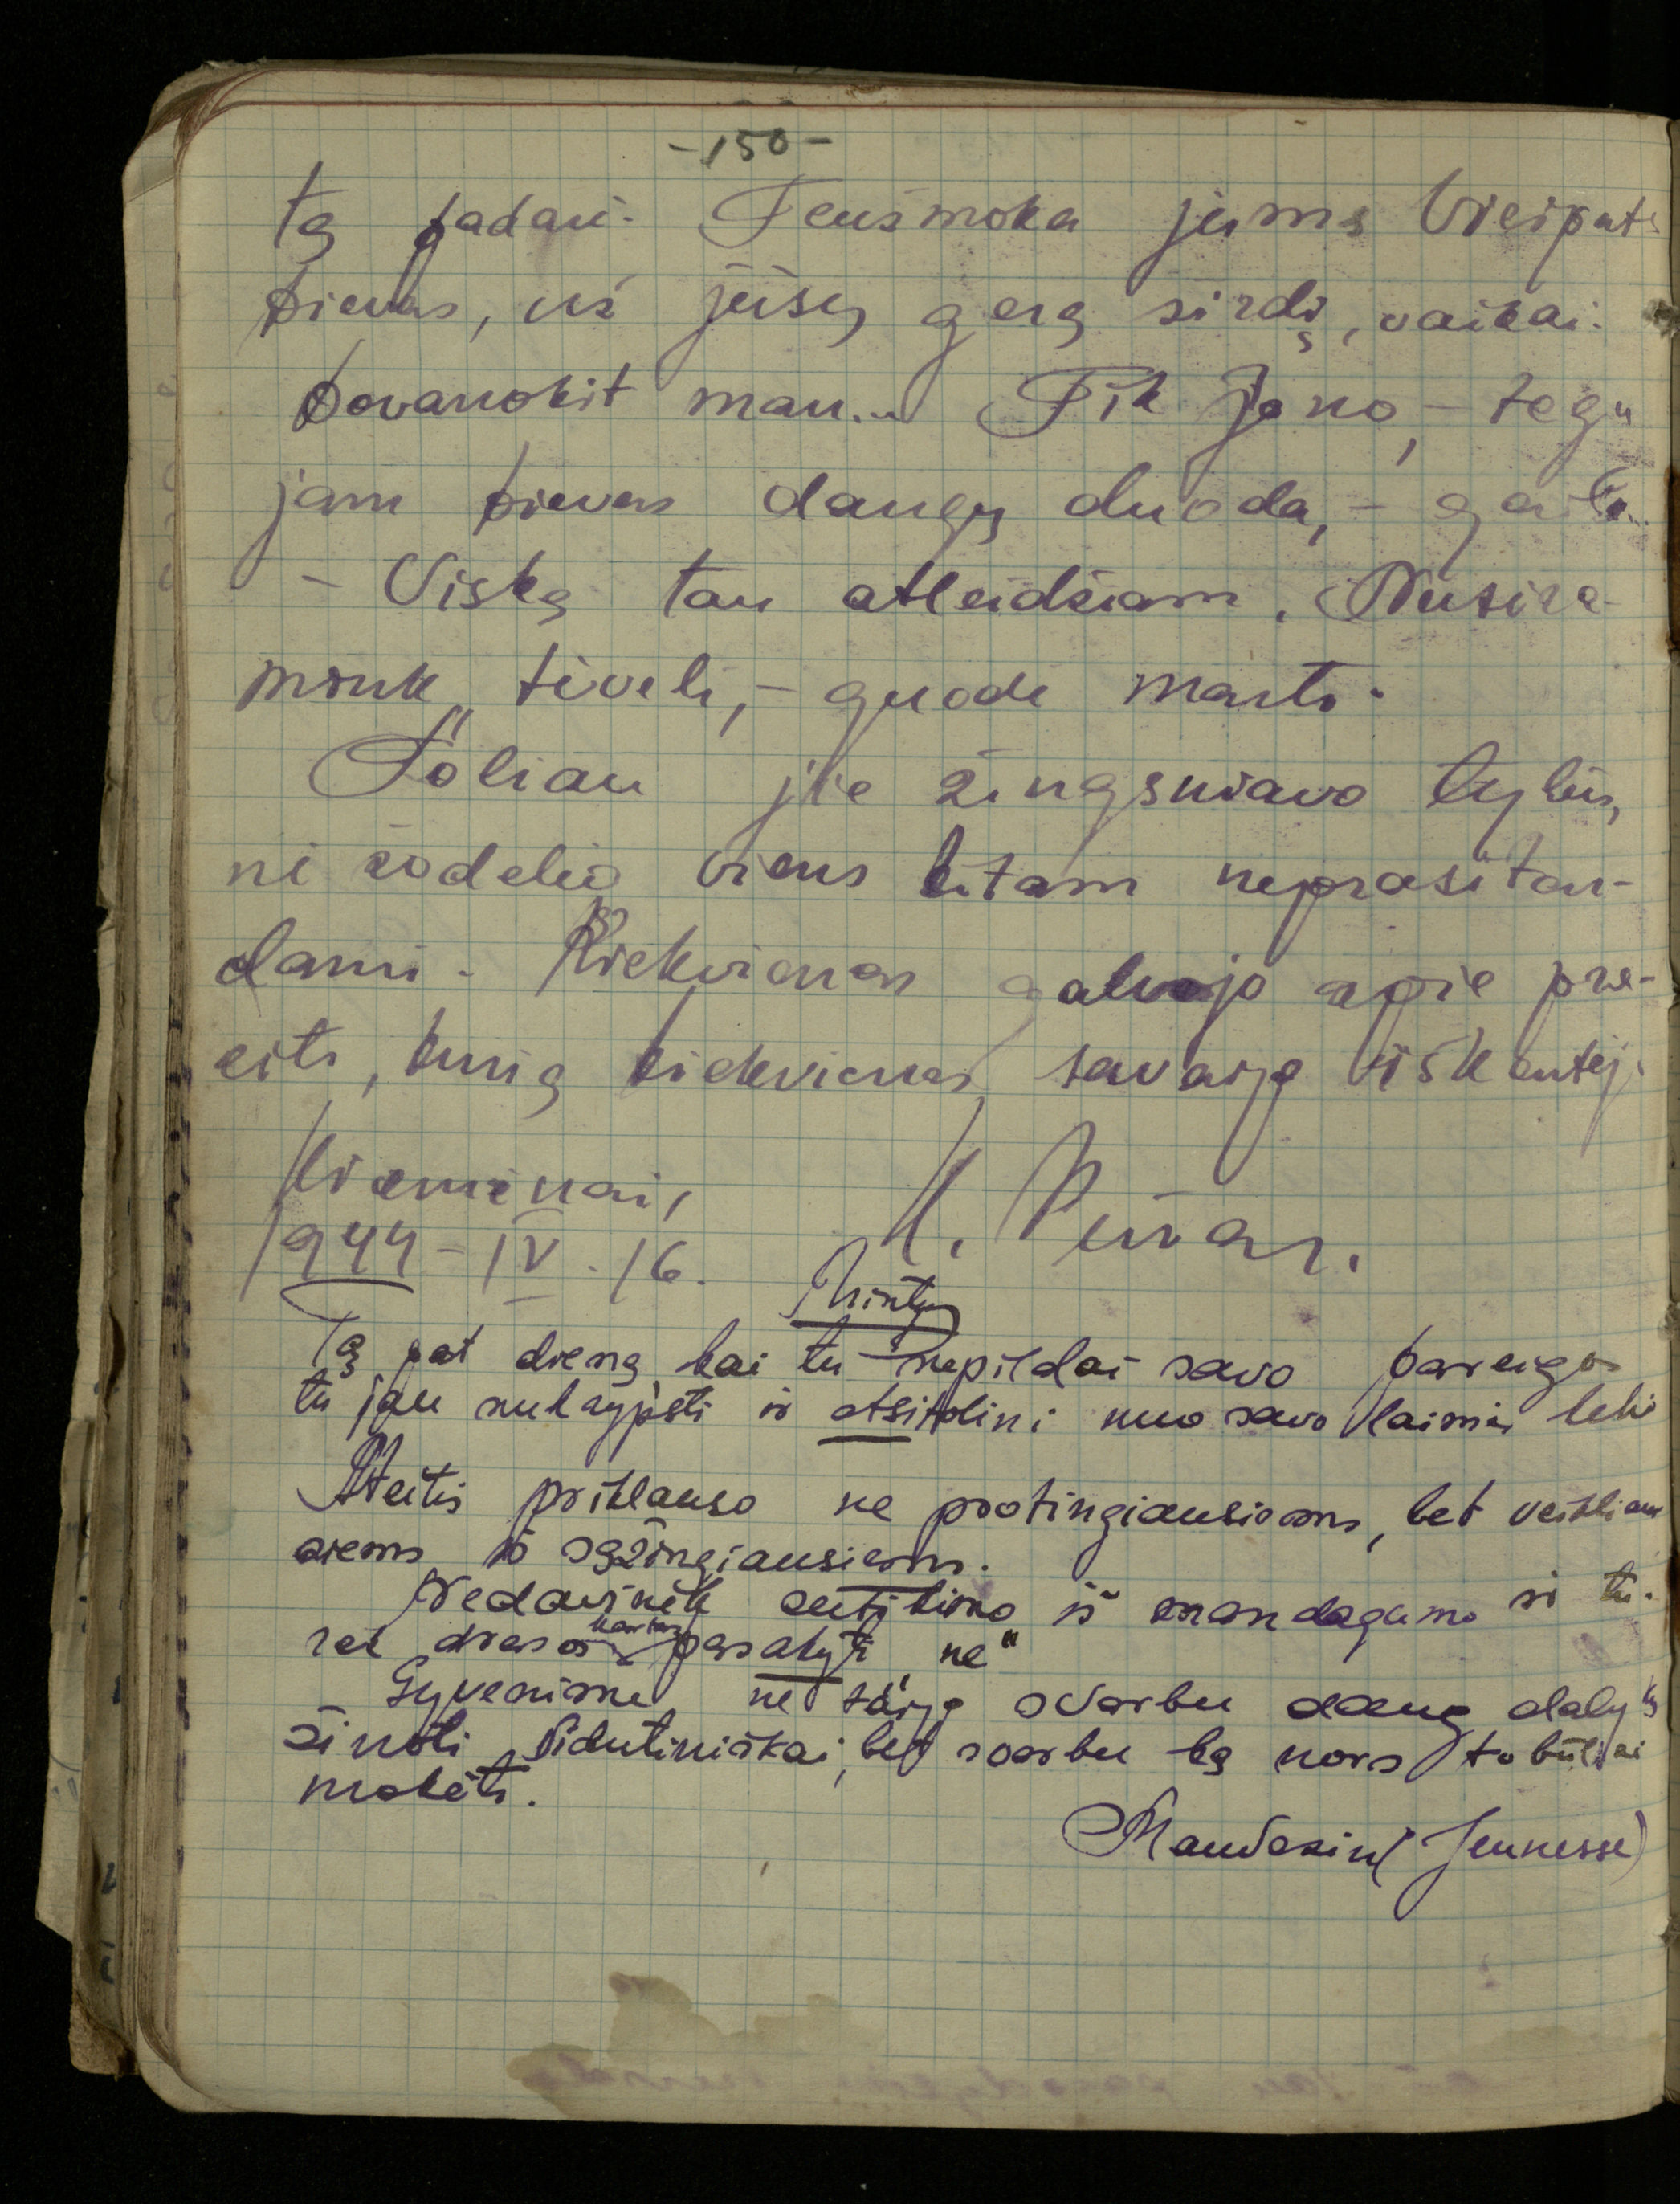 -150-
tą padarė. Teužmoka jums Viešpats
Dievas, už jūsų gerą širdį, vaikai.
Dovanokit man... Tik Jono, – tegu
jam Dievas dangų duoda, – gaila...
– Viską tau atleidžiam. Nusira-
mink, tėveli, – guodė marti.
Toliau jie žingsniavo tylūs,
nė žodelio viens kitam neprasitar-
dami. Kiekvienas galvojo apie pra-
eitį, kurią kiekvienas savaip iškentėj.
Kiemėnai,
1944-IV.16.
Mintys
Tą pat dieną, kai tu nepildai savo pareigos
tu jau nukrypsti ir atsitolini nuo savo laimės
Ateitis priklauso ne protingiausiems, bet veikliau
siems ir sąžingiausiems.
Nedaržnėk iš mandagumo ir tu-
rėk drąsos kartais pasakyti „ne"
Gyvenime ne taip svarbu daug dalykų
žinoti vidutiniškai, bet svarbu ką nors tobulai
mokėti.
(Jeunesse)